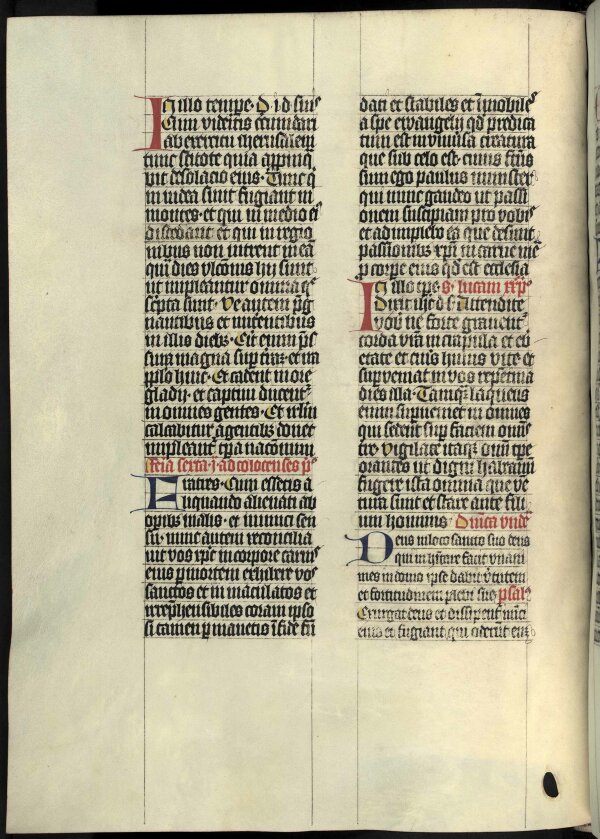 In illo tempe· D i d suis
Cum videritis circundari
ab exercitu iherusalem
tunc scitote quia appinq
vit desolacio eius· Tunc q
in iudea sunt fugiant in
montes· et qui in medio ei9
discedant et qui in regio
nibus non intrent in eā
quia dies ulconis hii sunt
ut impleantur omnia q̄
scripta sunt· Ve autem p̄g
nantibus et nutrientibus
in illis dieb3· Erit enim p̄s
sura magna sup trā3 et ira
pplo huic· Et cadent in ore
gladij et captivi ducent2
in omnes gentes· Et irlm
calcabitur a gentib3 donec
impleant2 tpa nacionum
feria sexta· ad colocenses p9
Fratres· Cum essetis a
liquando alienati ab
opib3 malis· et inimici sen
su· nunc autem reconcilia
vit vos xpc in corpore carnis
eius p mortem exhibere vos
sanctos et in maculatos et
irreprehensibiles coram ipso
si tamen p manetis ī fide fū
dati et stabiles et īmobiles
a spe ewangelij qd predica
tum est in universa creatura
que sub celo est· cuius fcūs
sum ego paulus minister
qui nunc gaudeo ut passi
onem suscipiam pro vobis
et ad impleto ea que desunt
passionib3 xpi in carne me
p corpe eius qd est ecclesia
In illo tpe· S· lucam xxi
Dixit ihc d s· Attendite
vob ne forte graventur
corda vr̄a in crapula et eb
etate et curis huius vite et
supveniat in vos repentina
dies illa· Tamq3 laqueus
enim supveniet in omnes
qui sedent sup faciem omis
tre· Vigilate itaq3 omi tpe
orantes ut digni habeamini
fugere ista omnia que ve
tura sunt et stare ante fili
um hominis· Dnica unde
Deus in loco sancto suo deus
qui inhitare facit unani
mes in domo ipse dabit v̄tutem
et fortitudinem plebi sue psal
Exurgat deus et dissipent inici
eius et fugiant qui oderūt eū